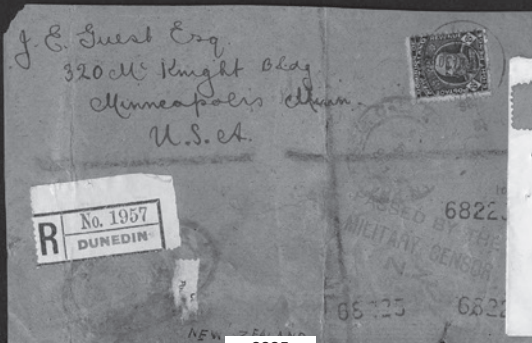 J. E. Guest Esq.
320 Mc Knight Bldg
Minneapolis Minn.
U.S.A.
R
No. 1957
DUNEDIN
6822
PASSED BY THE
MILITARY CENSOR
N.Z.
68225
6822
NEW ZEALAND